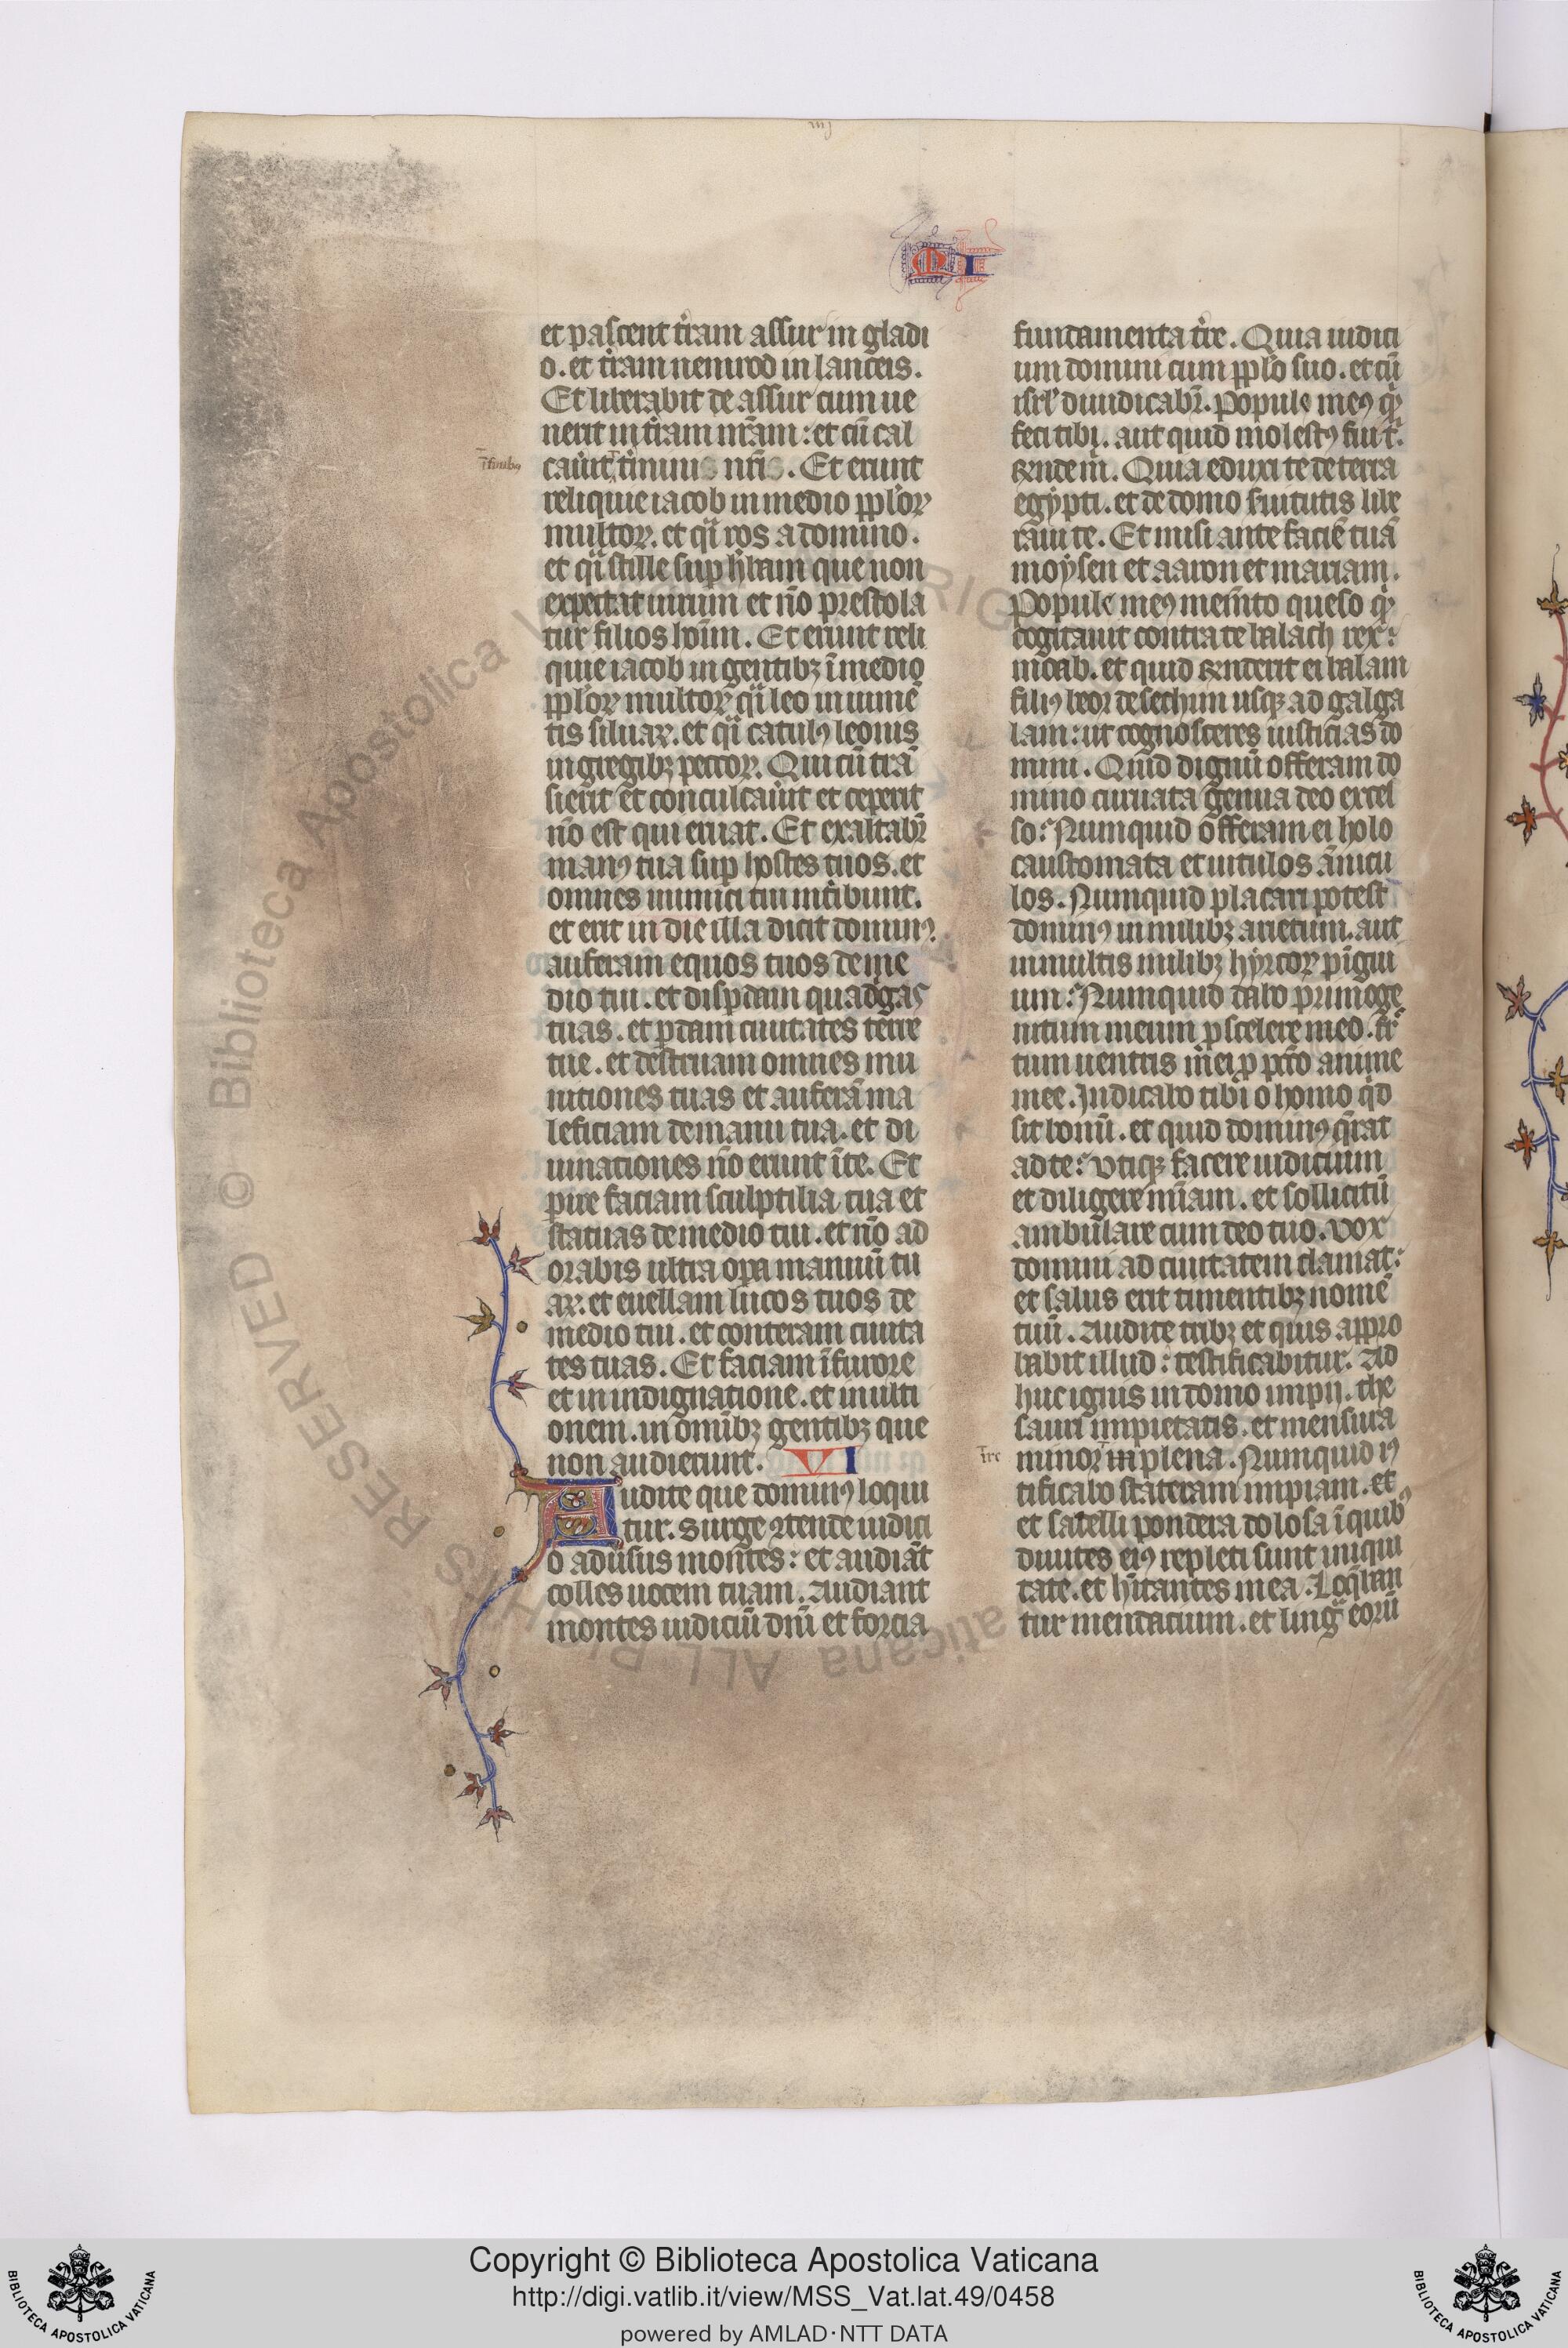 MI
et pascent t̾ram assur in gladi
o. et t̾ram nemrod in lanceis.
Et liberabit de assur cum ue
nerit in t̾ram nr̄am: et cū cal
cau̾it t̾minus nr̄is. Et erunt
reliquie iacob in medio pp̄loꝝ
multoꝝ. et qͣi ros a domino.
et qͣi stille suꝑ h̾bam que non
expectat uirum et nō prestola
tur filios hoīm. Et erunt reli
quie iacob in gentibꝫ ī medio
pp̄loꝝ multoꝝ qͣi leo in iumē
tis siluaꝝ. et qͣi catulꝰ leonis
in gregibꝫ pecoꝝ. Qui cū trā
sierit et conculcau̾it et ceperit
nō est qui eruat. Et exaltabit̾
manꝰ tua suꝑ hostes tuos. et
omnes inimici tui int̾ibunt.
et erit in die illa dicit dominꝰ.
auferam equos tuos de me
dio tui. et disꝑdam quad̾gas
tuas. et ꝑdam ciuitates terre
tue. et destruam omnes mu
nitiones tuas et auferā ma
leficiam de manu tua. et di
uinationes nō erunt ī te. Et
ꝑire faciam sculptilia tua et
statuas de medio tui. et nō ad
orabis ultra oꝑa manuū tu
aꝝ. et euellam lucos tuos de
medio tui. et conteram ciuita
tes tuas. Et faciam ī furore
et in indignatione. et in ulti
onem. in omībꝫ gentibꝫ que
non audierunt. VI
Audite que dominꝰ loqui
tur. Surge ꝯtende iudici
o adu̾sus montes: et audiāt
colles uocem tuam. Audiant
montes iudiciū dnī et forcia
fundamenta t̾re. Quia iudici
um domini cum pp̄lo suo. et cū
isrl̾ diiudicabit̾. Popule meꝰ qͥd
feci tibi. aut quid molestꝰ fui t̾.
Rn̄de m̾. Quia eduxi te de terra
egypti. et de domo s̾uitutis libe
raui te. Et misi ante faciē tuā
moysen et aaron et mariam.
Popule meꝰ mem̄to queso qͥd
cogitauit contra te balach rex:
moab. et quid Rn̄derit ei balam
filiꝰ beor de sethim usqꝫ ad galga
lam: ut cognosceres iusticias do
mini. Quid dignū offeram do
mino curuata genua deo excel
so: Numquid offeram ei holo
caustomata et uitulos ānicu
los. Numquid placari potest
dominꝰ in milibꝫ arietum. aut
in multis milibꝫ hyrcoꝝ pīgui
um: Numquid dabo primoge
nitum meum ꝓ scelere meo. fru
ctum uentris mei ꝓ pc̄to anime
mee. Indicabo tibi o homo qͥd
sit bonū. et quid dominꝰ q̄rat
a te: Utiqꝫ facere iudicium
et diligere mīam. et sollicitū
ambulare cum deo tuo. Vox
domini ad ciuitatem clamat:
et salus erit timentibꝫ nomē
tuū. Audite tribꝫ et quis appro
babit illud: testificabitur. Ad
huc ignis in domo impii. the
sauri impietatis. et mensura
minor plena. Numquid iꝰ
tificabo stateram impiam. et
et satelli pondera dolosa ī quibꝰ
diuites eiꝰ repleti sunt iniqui
tate. et hītantes in ea. Loq̄ban
tur mendacium. et lingͣ eorū
Copyright © Biblioteca Apostolica Vaticana
http://digi.vatlib.it/view/MSS_Vat.lat.49/0458
powered by AMLAD·NTT DATA
BIBLIOTECA APOSTOLICA VATICANA
BIBLIOTECA APOSTOLICA VATICANA